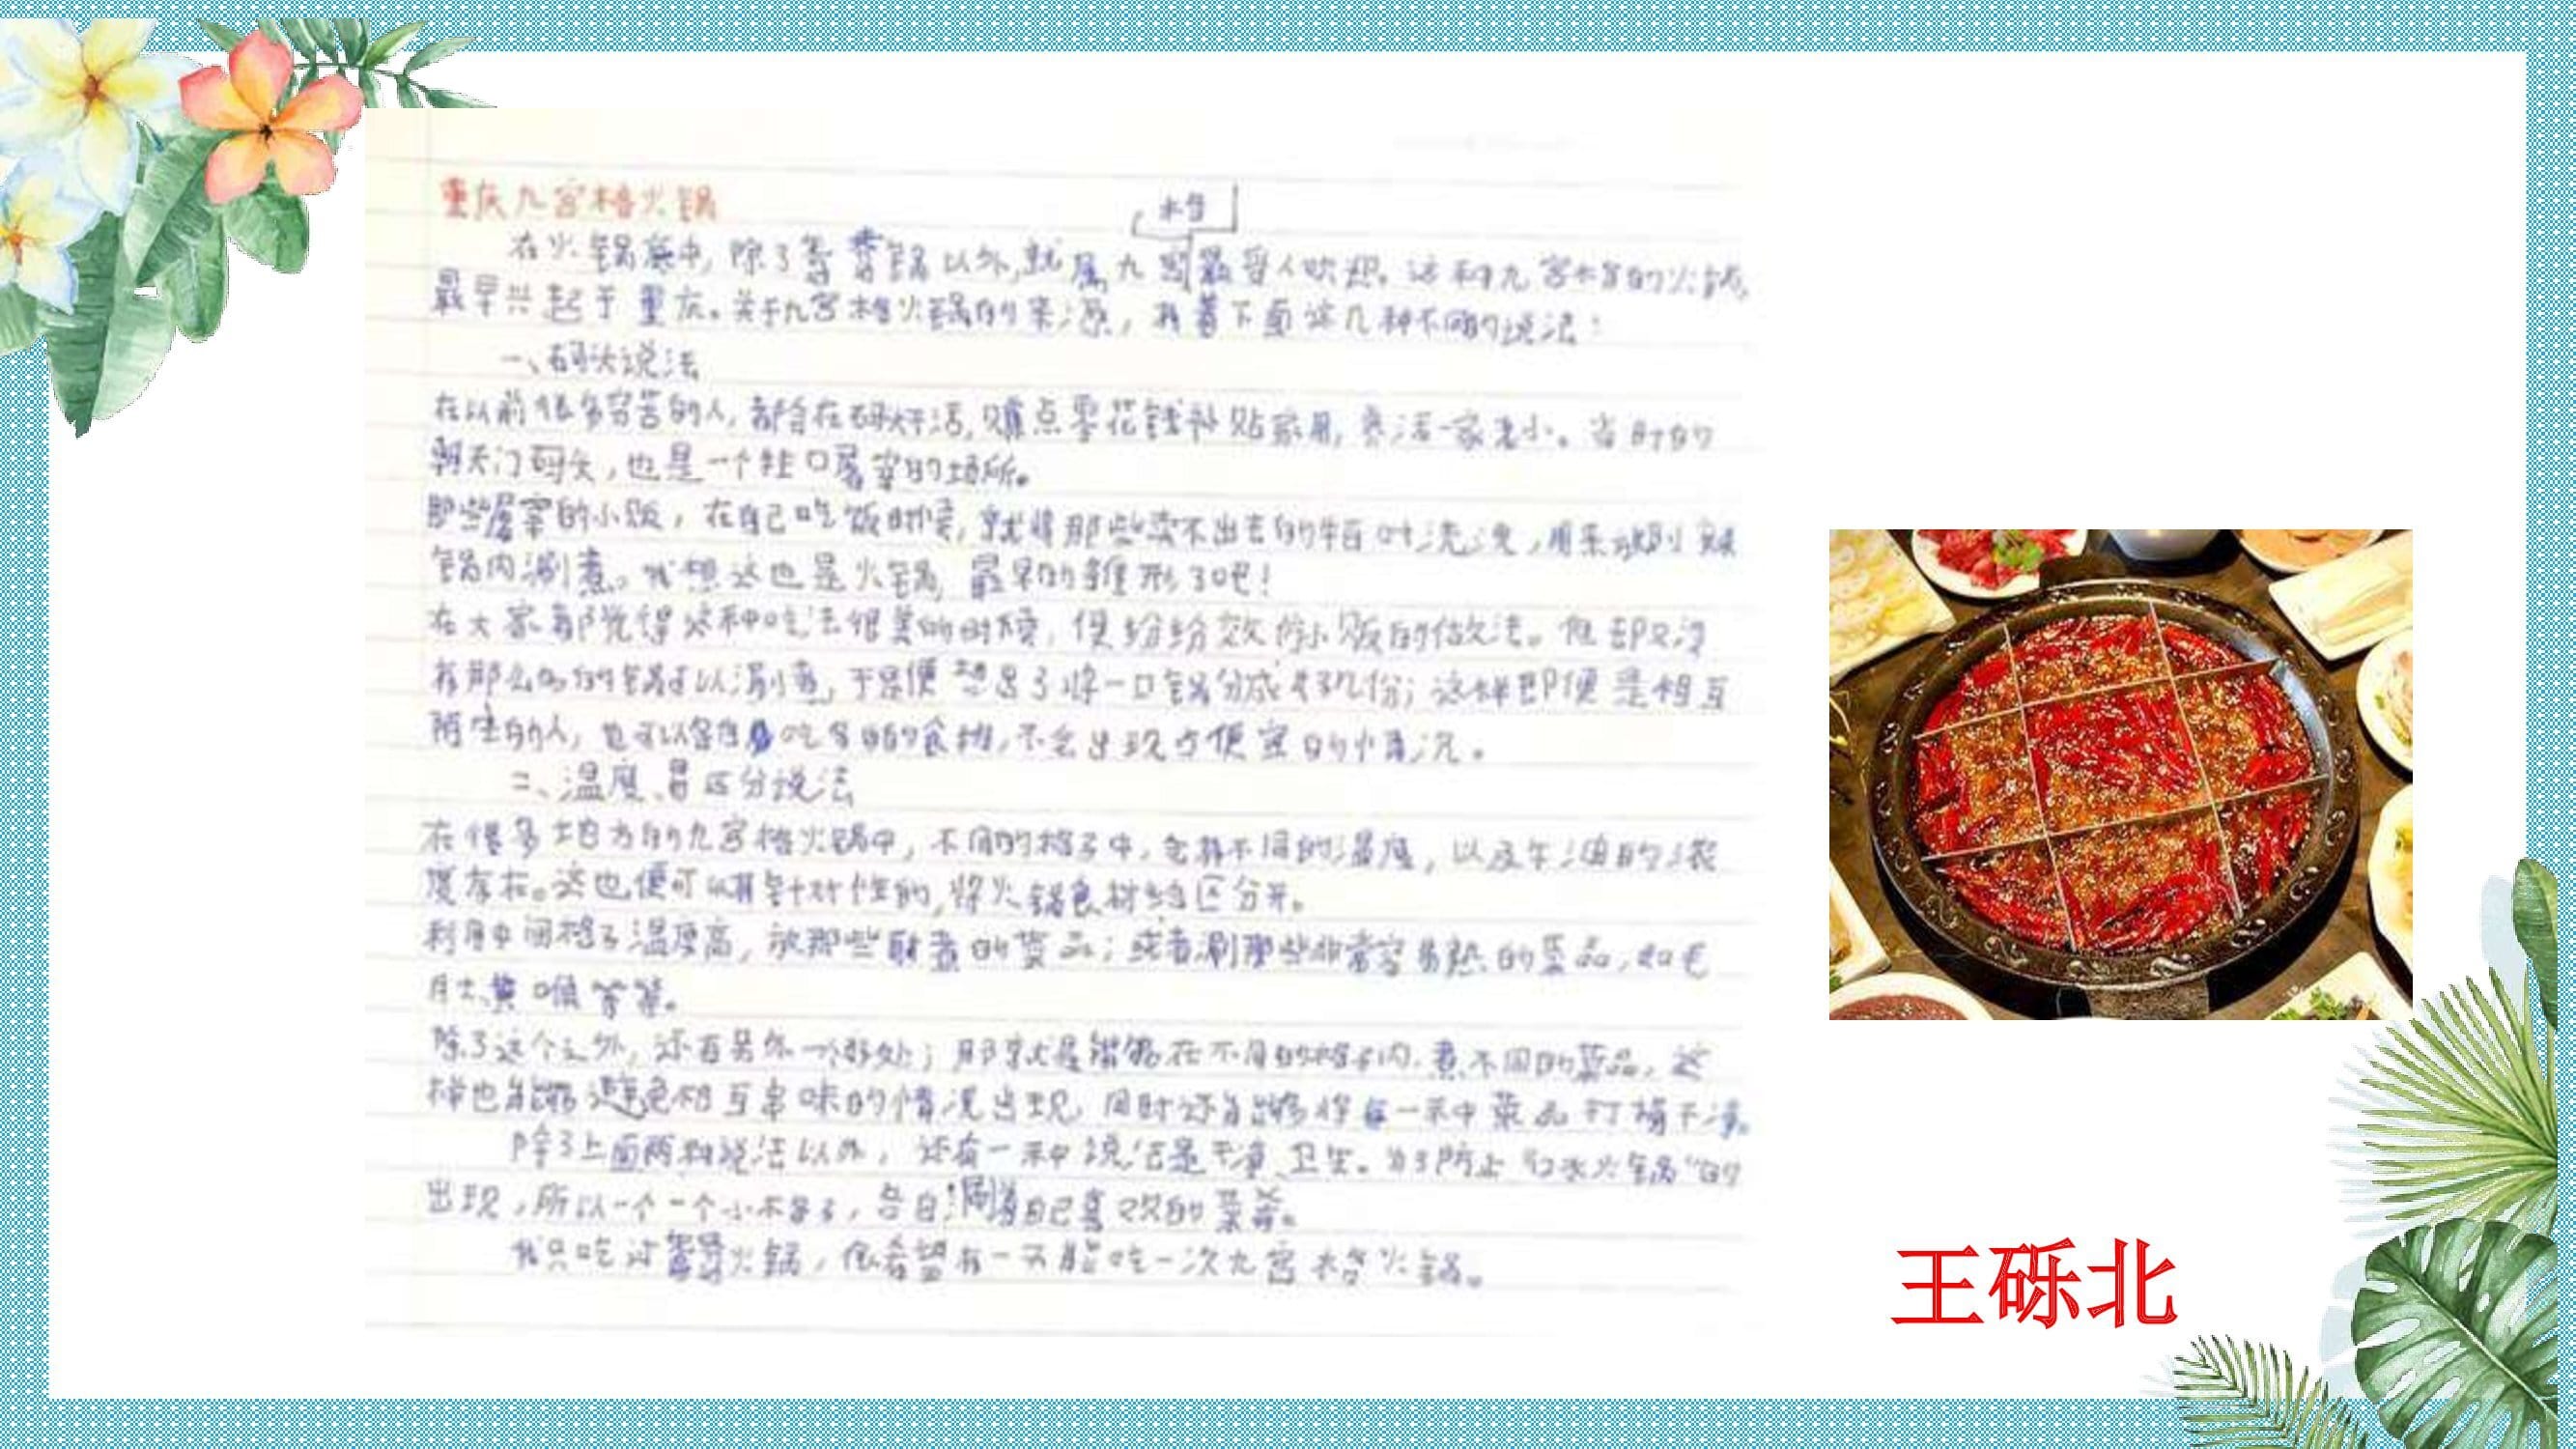 重庆九宫格火锅
格
在火锅底中,除了鸳鸯锅以外,就属九宫最受人欢迎。这种九宫格的火锅,
最早兴起于重庆。关于九宫格火锅的来源,有着下面这几种不同的说法:
一、码头说法
在以前很多穷苦的人,都会在码头干活,赚点零花钱补贴家用,养活一家老小。当时的
朝天门码头,也是一个牲口屠宰的场所。
那些屠宰的小贩,在自己吃饭时候,就将那些卖不出去的牛百叶洗洗,用来放到辣
锅内涮煮。我想这也是火锅,最早的雏形了吧!
在大家都觉得这种吃法很美的时候,便纷纷效仿小贩的做法。但却又没
有那么多的锅可以涮煮,于是便想出了将一口锅分成好几份;这样即便是相互
陌生的人,也可以各自吃各自的食物,不会出现占便宜的情况。
二、温度、区分说法
在很多地方的九宫格火锅中,不同的格子中,会有不同的温度,以及牛油的浓
度存在。这也便可以有针对性的,将火锅食材给区分开。
利用中间格子温度高,放那些耐煮的菜品;或者涮那些非常容易熟的菜品,如毛
肚、黄喉等等。
除了这个之外,还有另外一个好处;那就是能够在不同的格子内,煮不同的菜品,这
样也能够避免相互串味的情况出现,同时还能够将每一种菜品打捞干净。
除了上面两种说法以外,还有一种说法是干净、卫生。为了防止“口水火锅”的
出现,所以一个一个小格子,各自涮着自己喜欢的菜肴。
我只吃过鸳鸯火锅,很希望有一天能吃一次九宫格火锅。
王砾北